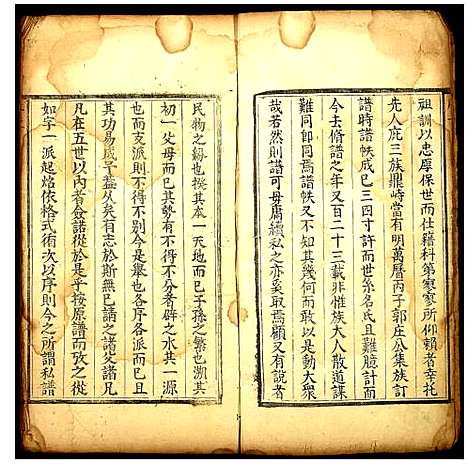 祖訓以忠厚保世而仕籍科第寥寥所仰賴者幸托
先人庇三族鼎峙當有明萬曆丙子郭庄公集族訂
譜時譜帙成已三四寸許而世系名氏且難臆計而
今去脩譜之年又百二十三載非惟族大人散道謀
難同即同焉譜帙又不知其幾何而敢以是動大衆
哉若然則譜可毋庸續私之亦奚取焉顧又有說者
民物之緐也揆其本一天地而已子孫之繁也溯其
初一父母而已其勢有不得不分者辟之水其一源
也而支派則不得不别今是舉也各序各派而已且
其功易成乎益久矣有志於斯無已請之諸父諸從
凡在五世以內者僉諾從於是乎按原譜而攷之從
如字一派起烙依格式術次以序則今之所謂私譜